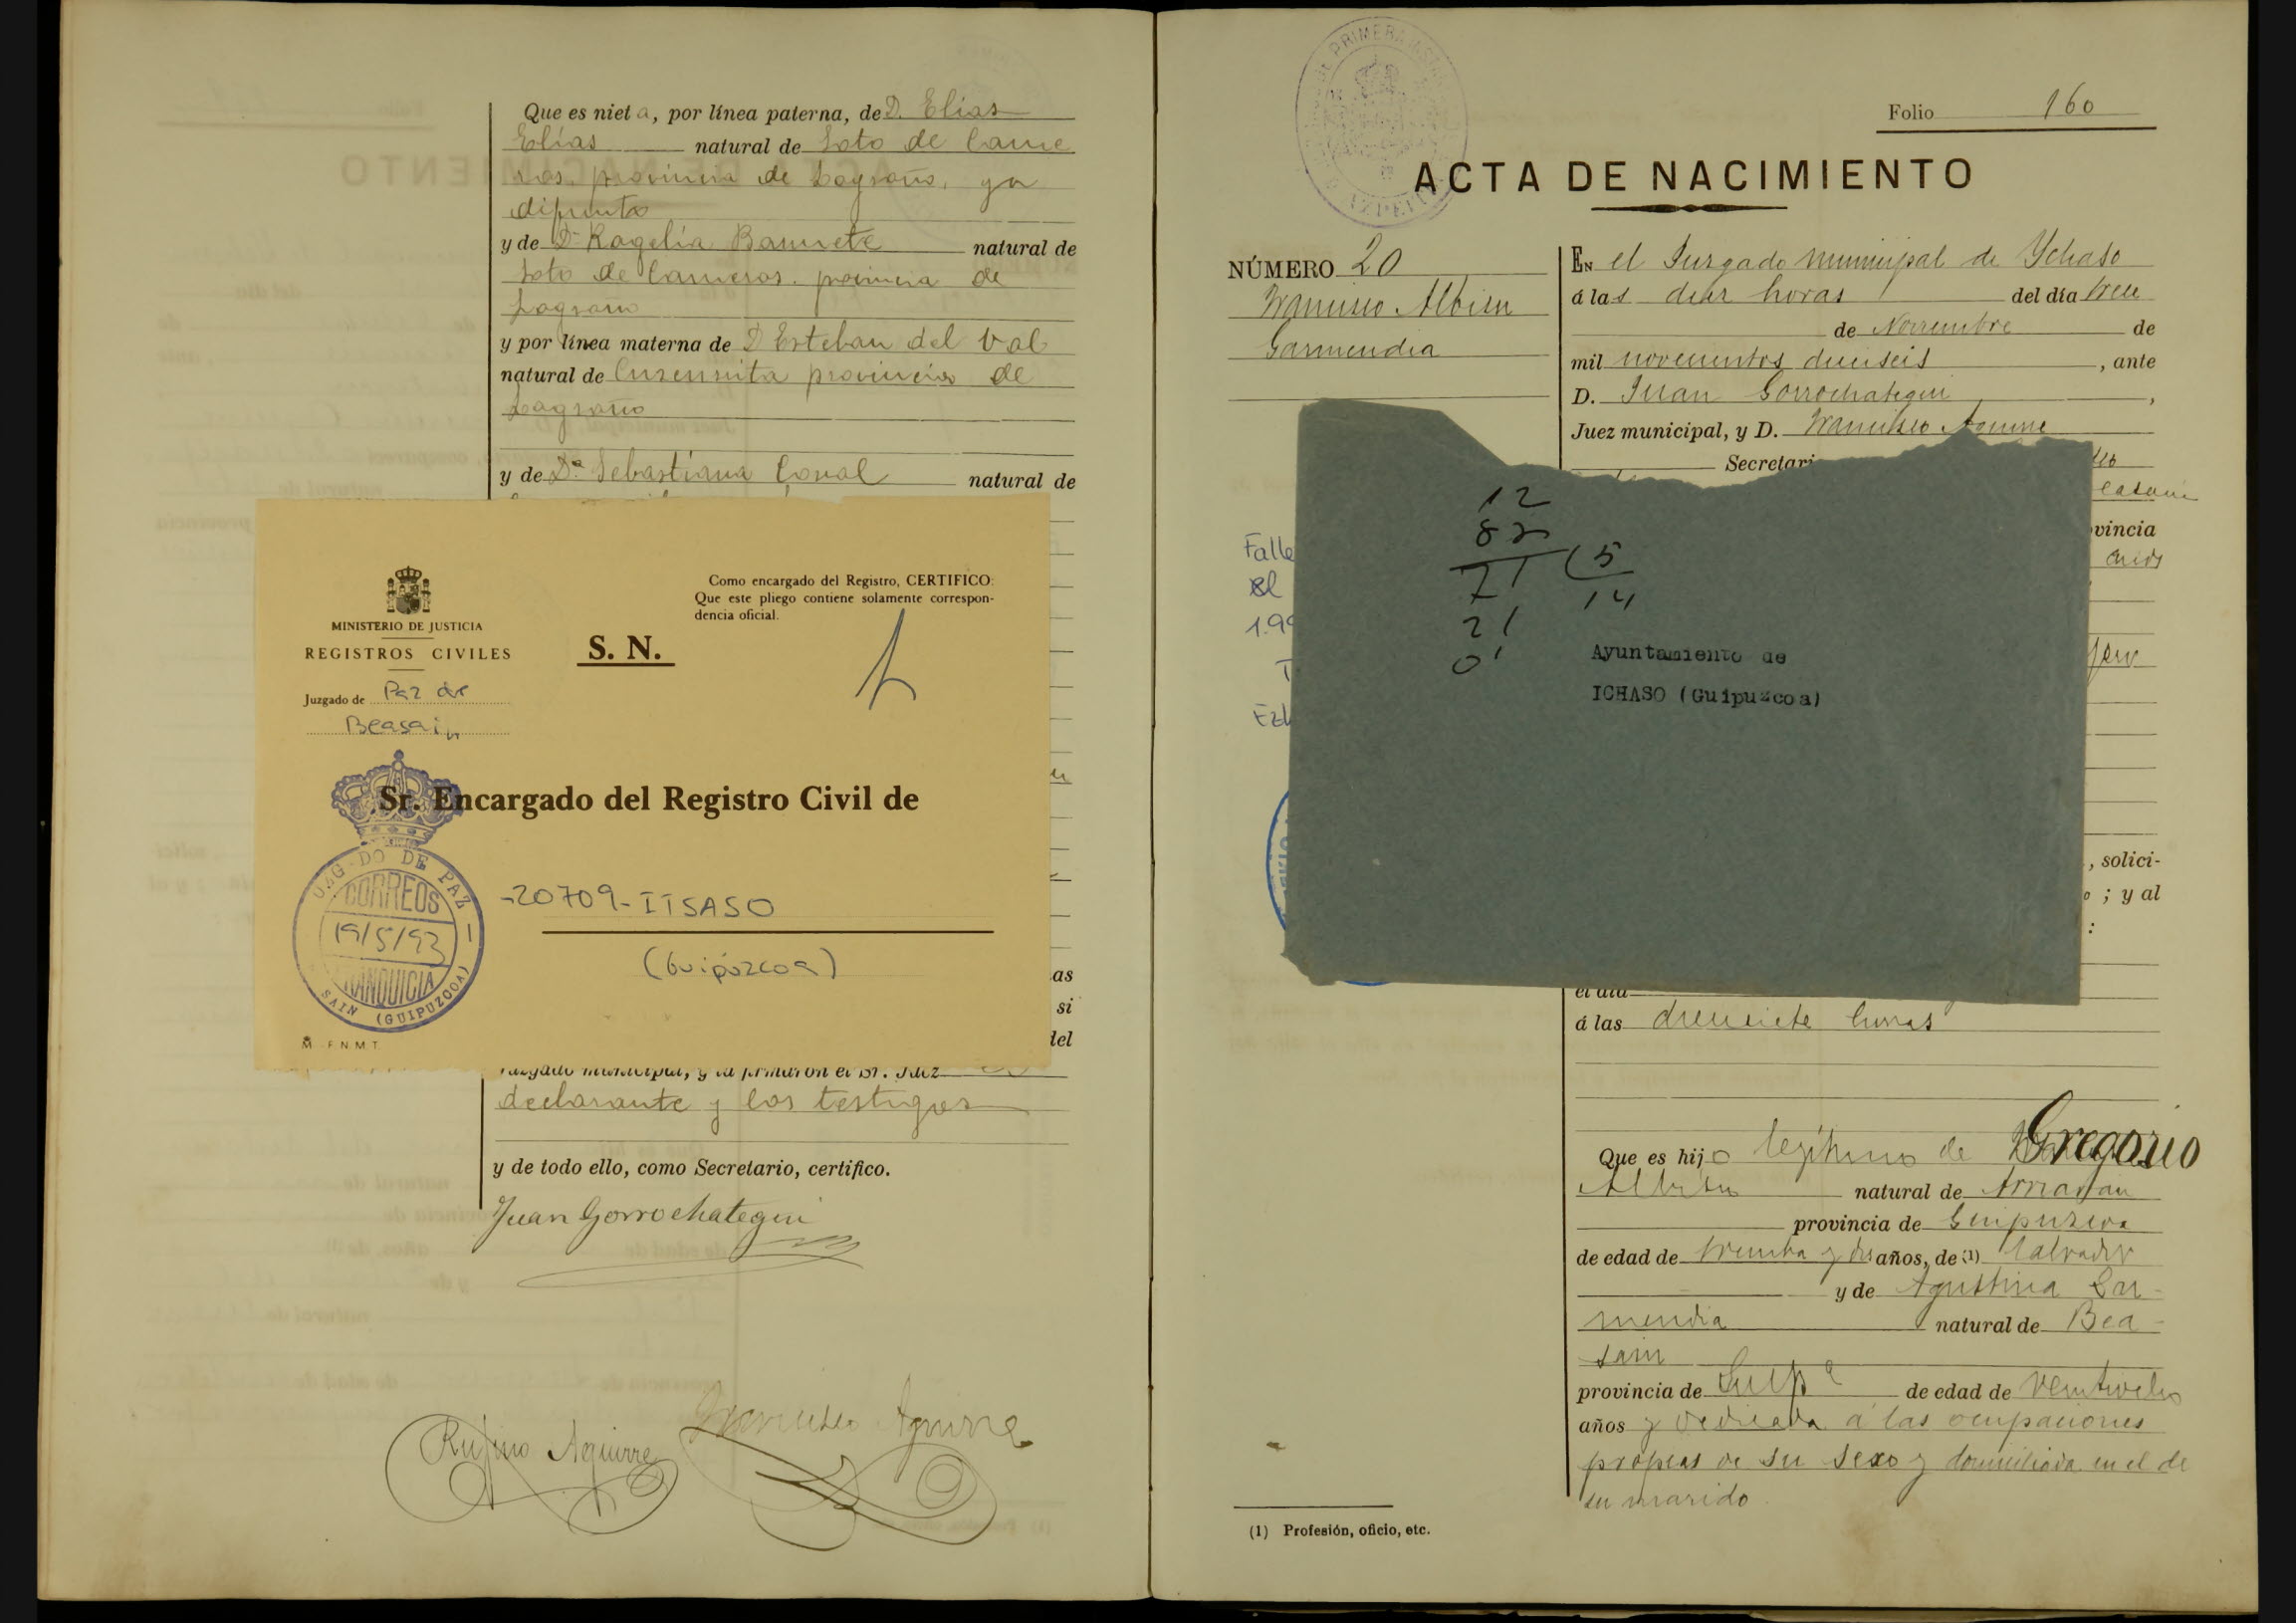 Que es nieta, por línea paterna, de D. Elías
Elías natural de Soto de Came
ros, provincia de Logroño, ya
difunto
y de Dª Rogelia Barrete natural de
Soto de Cameros. provincia de
Logroño
y por línea materna de D Esteban del Val
natural de provincia de
Logroño
y de Dª Sebastiana Corral natural de
MINISTERIO DE JUSTICIA
REGISTROS CIVILES
Juzgado de Paz de
Beasain
S. N.
Como encargado del Registro, CERTIFICO:
Que este pliego contiene solamente correspon-
dencia oficial.
Sr. Encargado del Registro Civil de
-20709- ITSASO
(Guipúzcoa)
JUZGADO DE PAZ
CORREOS
19/5/93
FRANQUICIA
SAIN (GUIPUZCOA)
F.N.M.T.
as
si
del
Juzgado municipal, y la firmaron el Sr. Juez
declarante y los testigos
y de todo ello, como Secretario, certifico.
Juan Gorrochategui
Rufino Aguirre
Francisco Aguirre
Folio 160
ACTA DE NACIMIENTO
NÚMERO 20
Francisco Albisu
Garmendia
EN el Juzgado municipal de Ychaso
á las diez horas del día trece
de Noviembre de
mil novecientos dieciseis, ante
D. Juan Gorrochategui,
Juez municipal, y D. Francisco Aguirre
Secretari
vincia
Falle
el
1.99
12
82
71 5
14
21
0
Ayuntamiento de
ICHASO (Guipuzcoa)
, solici-
; y al
:
el día
á las diecisiete horas
Que es hijo legítimo de Gregorio
Albisu natural de Arriaran
provincia de Guipuzcoa
de edad de treinta y dos años, de (1) labrador
y de Agustina Gar-
mendia natural de Bea-
sain
provincia de Guipª de edad de veintiocho
años y dedicada á las ocupaciones
propias de su sexo y domiciliada en el de
su marido.
(1) Profesión, oficio, etc.